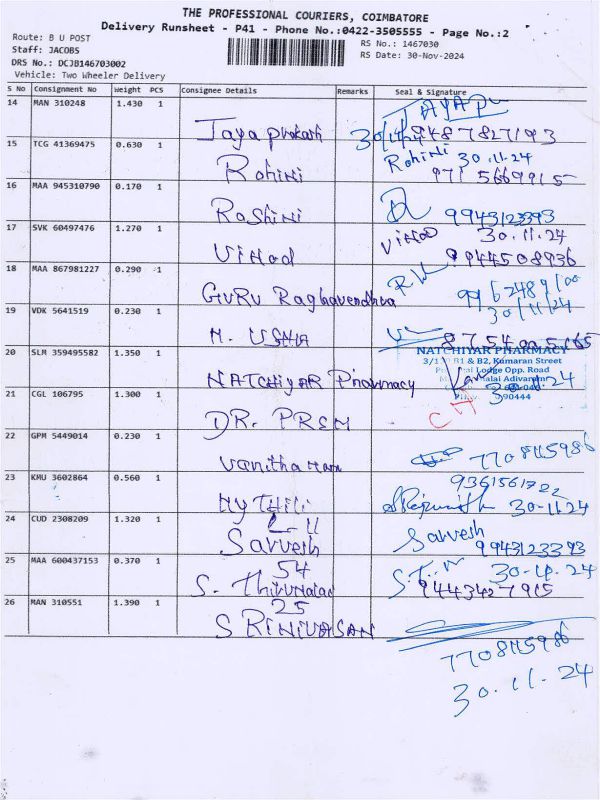 THE PROFESSIONAL COURIERS, COIMBATORE
Delivery Runsheet - P41 - Phone No.:0422-3505555 - Page No.:2
Route: B U POST
Staff: JACOBS
DRS No.: DCJB146703002
Vehicle: Two Wheeler Delivery
RS No.: 1467030
RS Date: 30-Nov-2024
S No Consignment No Weight PCS Consignee Details Remarks Seal & Signature
14 MAN 310248 1.430 1
Jaya prakash 9487827193
15 TCG 41369475 0.630 1
Rohini Rohini 30.11.24
971 5669915
16 MAA 945310790 0.170 1
Roshini 9943123393
17 SVK 60497476 1.270 1
Vinod Vinod 30.11.24
9944508936
18 MAA 867981227 0.290 1
GURU Raghavendhra
30/11/24
19 VDK 5641519 0.230 1
M. USHA
20 SLM 359495582 1.350 1
NATCHIYAR Pharmacy NATCHIYAR PHARMACY
B1 & B2, Kumaran Street
Lodge Opp. Road
Adivaram
90444
21 CGL 106795 1.300 1
DR. PRSM
22 GPM 5449014 0.230 1
Vanitha mani 7708115986
23 KMU 3602864 0.560 1
MYTHILI 9361561722
30-11-24
24 CUD 2308209 1.320 1
Sarvesh Sarvesh
9943123393
25 MAA 600437153 0.370 1
54
S. 30-11-24
9443427915
26 MAN 310551 1.390 1
25
SRINIVASAN
7708115986
30.11.24